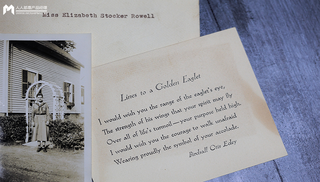 人人都是产品经理
Miss Elizabeth Stocker Bowell
Lines to a Golden Eaglet
I would wish you the range of the eaglet's eye,
The strength of his wings that your spirit may fly
Over all of life's turmoil—your purpose held high,
I would wish you the courage to walk unafraid
Wearing proudly the symbol of your accolade.
Birdsall Otis Edey